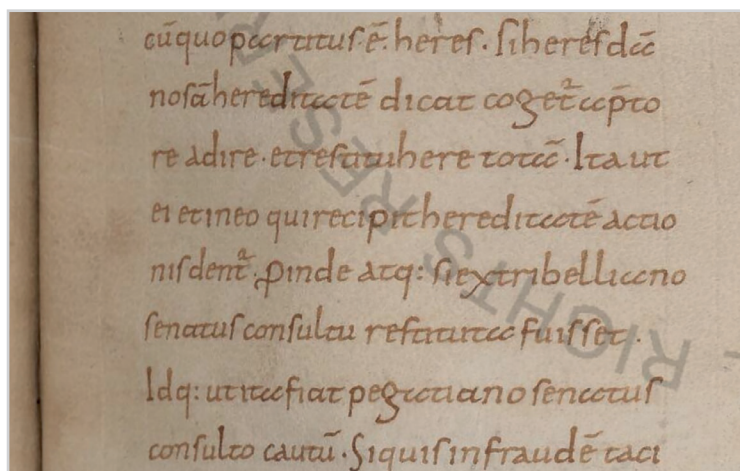 cū quo partitus ē. heres. si heres dā
nosā hereditatē dicat coget᷑ a p̄to
re adire. et restituhere totā. Ita ut
ei et in eo qui recipit hereditatē actio
nis dent᷑. ꝓinde atq: si ex tribelliano
senatus consultu restituta fuisset.
Idq: ut ita fiat pegatiano senatus
consulto cautū. Si quis in fraudē taci
RIGHTS RESER